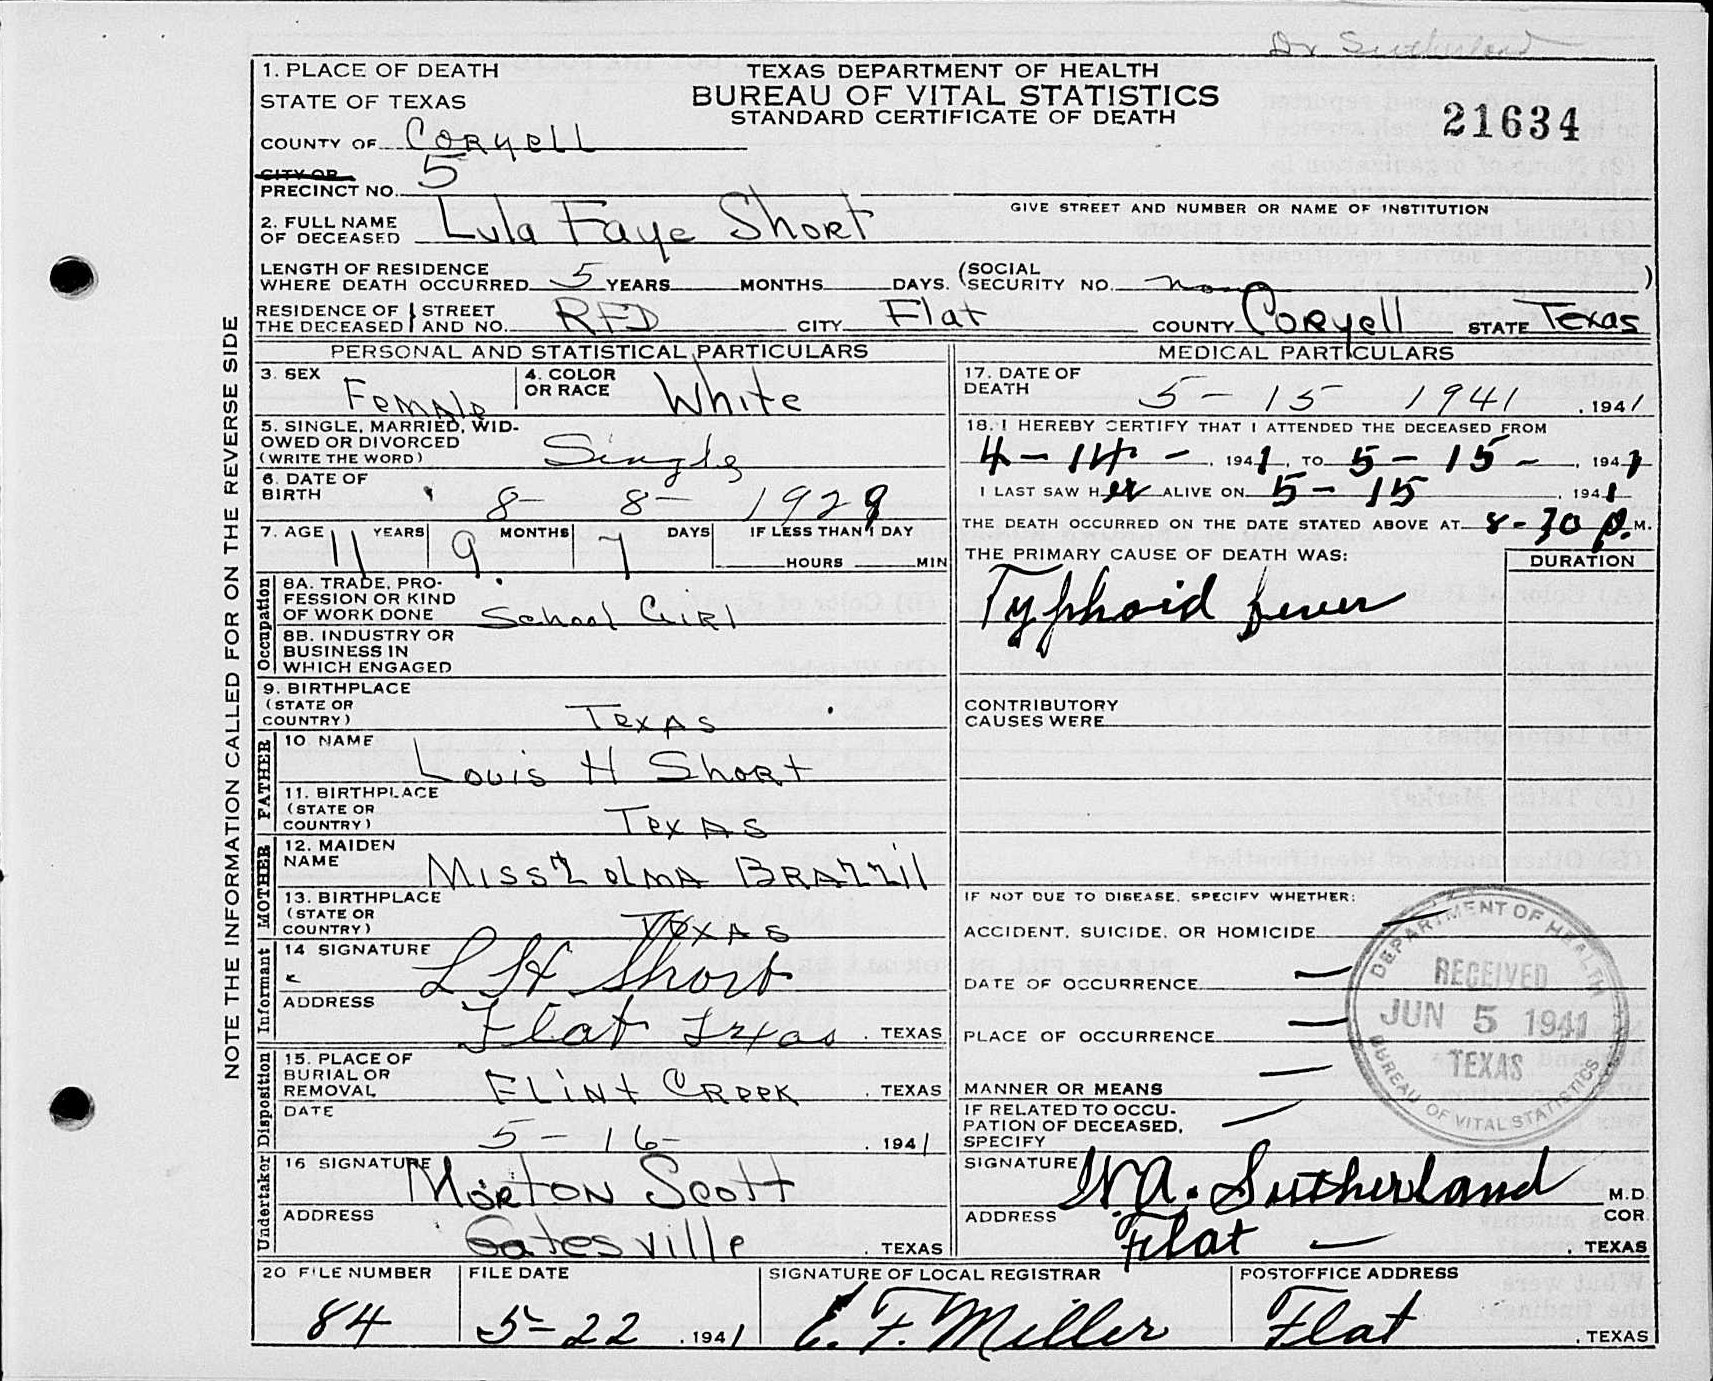 Dr Sutherland
1. PLACE OF DEATH
STATE OF TEXAS
COUNTY OF Coryell
CITY OR
PRECINCT NO. 5
TEXAS DEPARTMENT OF HEALTH
BUREAU OF VITAL STATISTICS
STANDARD CERTIFICATE OF DEATH
21634
GIVE STREET AND NUMBER OR NAME OF INSTITUTION
2. FULL NAME
OF DECEASED Lula Faye Short
LENGTH OF RESIDENCE
WHERE DEATH OCCURRED 5 YEARS MONTHS DAYS. (SOCIAL SECURITY NO. )
RESIDENCE OF THE DECEASED STREET AND NO. RFD CITY Flat COUNTY Coryell STATE Texas
PERSONAL AND STATISTICAL PARTICULARS
3. SEX Female
4. COLOR OR RACE White
5. SINGLE, MARRIED, WID-
OWED OR DIVORCED
(WRITE THE WORD) Single
6. DATE OF
BIRTH 8- 8- 1929
7. AGE 11 YEARS 9 MONTHS 7 DAYS IF LESS THAN 1 DAY
HOURS MIN
Occupation
8A. TRADE, PRO-
FESSION OR KIND
OF WORK DONE School Girl
8B. INDUSTRY OR
BUSINESS IN
WHICH ENGAGED
9. BIRTHPLACE
(STATE OR
COUNTRY) Texas
FATHER
10. NAME Louis H Short
11. BIRTHPLACE
(STATE OR
COUNTRY) Texas
MOTHER
12. MAIDEN
NAME Miss Zelma Brazzil
13. BIRTHPLACE
(STATE OR
COUNTRY) Texas
Informant
14 SIGNATURE L H Short
ADDRESS Flat Texas . TEXAS
Disposition
15. PLACE OF
BURIAL OR
REMOVAL Flint Creek . TEXAS
DATE 5 - 16 - . 1941
Undertaker
16 SIGNATURE Morton Scott
ADDRESS Gatesville . TEXAS
MEDICAL PARTICULARS
17. DATE OF
DEATH 5 - 15 1941 . 1941
18. I HEREBY CERTIFY THAT I ATTENDED THE DECEASED FROM
4 - 14 - . 1941, TO 5 - 15 - . 1941
I LAST SAW H er ALIVE ON 5 - 15 . 1941
THE DEATH OCCURRED ON THE DATE STATED ABOVE AT 8-30 P. M.
THE PRIMARY CAUSE OF DEATH WAS: DURATION
Typhoid fever
CONTRIBUTORY
CAUSES WERE
IF NOT DUE TO DISEASE, SPECIFY WHETHER:
ACCIDENT, SUICIDE, OR HOMICIDE —
DATE OF OCCURRENCE —
PLACE OF OCCURRENCE —
MANNER OR MEANS —
IF RELATED TO OCCU-
PATION OF DECEASED,
SPECIFY —
DEPARTMENT OF HEALTH
RECEIVED
JUN 5 1941
TEXAS
BUREAU OF VITAL STATISTICS
SIGNATURE W.A. Sutherland M.D.
COR.
ADDRESS Flat — . TEXAS
20 FILE NUMBER FILE DATE SIGNATURE OF LOCAL REGISTRAR POSTOFFICE ADDRESS
84 5-22 . 1941 E. F. Miller Flat . TEXAS
NOTE THE INFORMATION CALLED FOR ON THE REVERSE SIDE